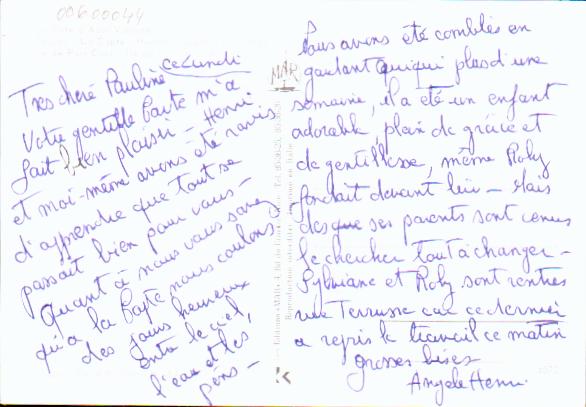 00600044
ce Lundi
Tres chere Pauline
Votre gentille Carte m'a
fait bien plaisir - Henri
et moi-même avons été ravis
d'apprendre que tout se
passait bien pour vous -
Quant à nous vous savez
qu'a la Capte nous coulons
des jours heureux
entre le ciel,
l'eau et les
pins -
MAR
Nous avons été comblés en
gardant quiqui plus d'une
semaine, il a été un enfant
adorable, plein de grâce et
de gentillesse, même Roby
fondait devant lui - Mais
des que ses parents sont venus
le chercher tout à changer -
Sylviane et Roby sont rentrés
rue Terrusse car ce dernier
a repris le travail ce matin
grosses bises
Angele Henri